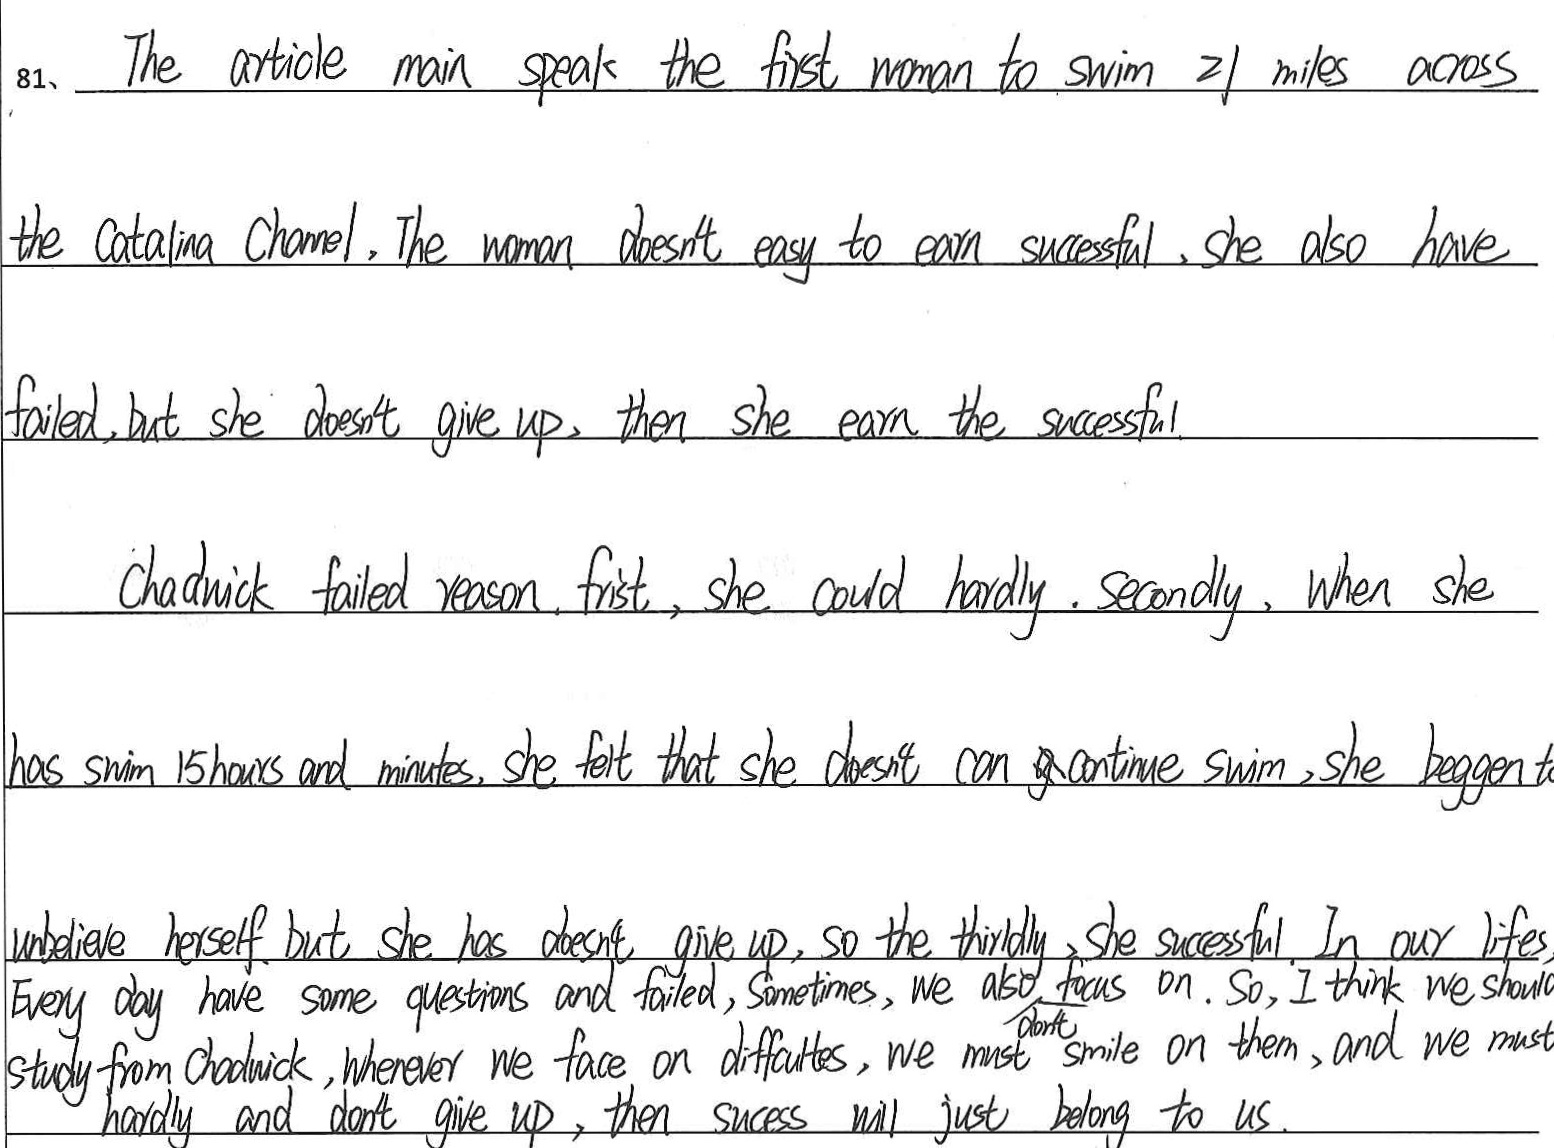 81、 The article main speak the first woman to swim 21 miles across
the Catalina Channel. The woman doesn't easy to earn successful, she also have
failed, but she doesn't give up, then she earn the successful.
Chadwick failed reason. frist, she could hardly. Secondly, When she
has swim 15 hours and minutes, she felt that she doesn't can continue swim, she beggen to
unbelieve herself. but she has doesn't give up, so the thirldly, she successful. In our lifes,
Every day have some questions and failed, Sometimes, we also focus on. So, I think we should
don't
study from Chadwick, Wherever we face on diffcultes, we must smile on them, and we must
hardly and don't give up, then sucess will just belong to us.